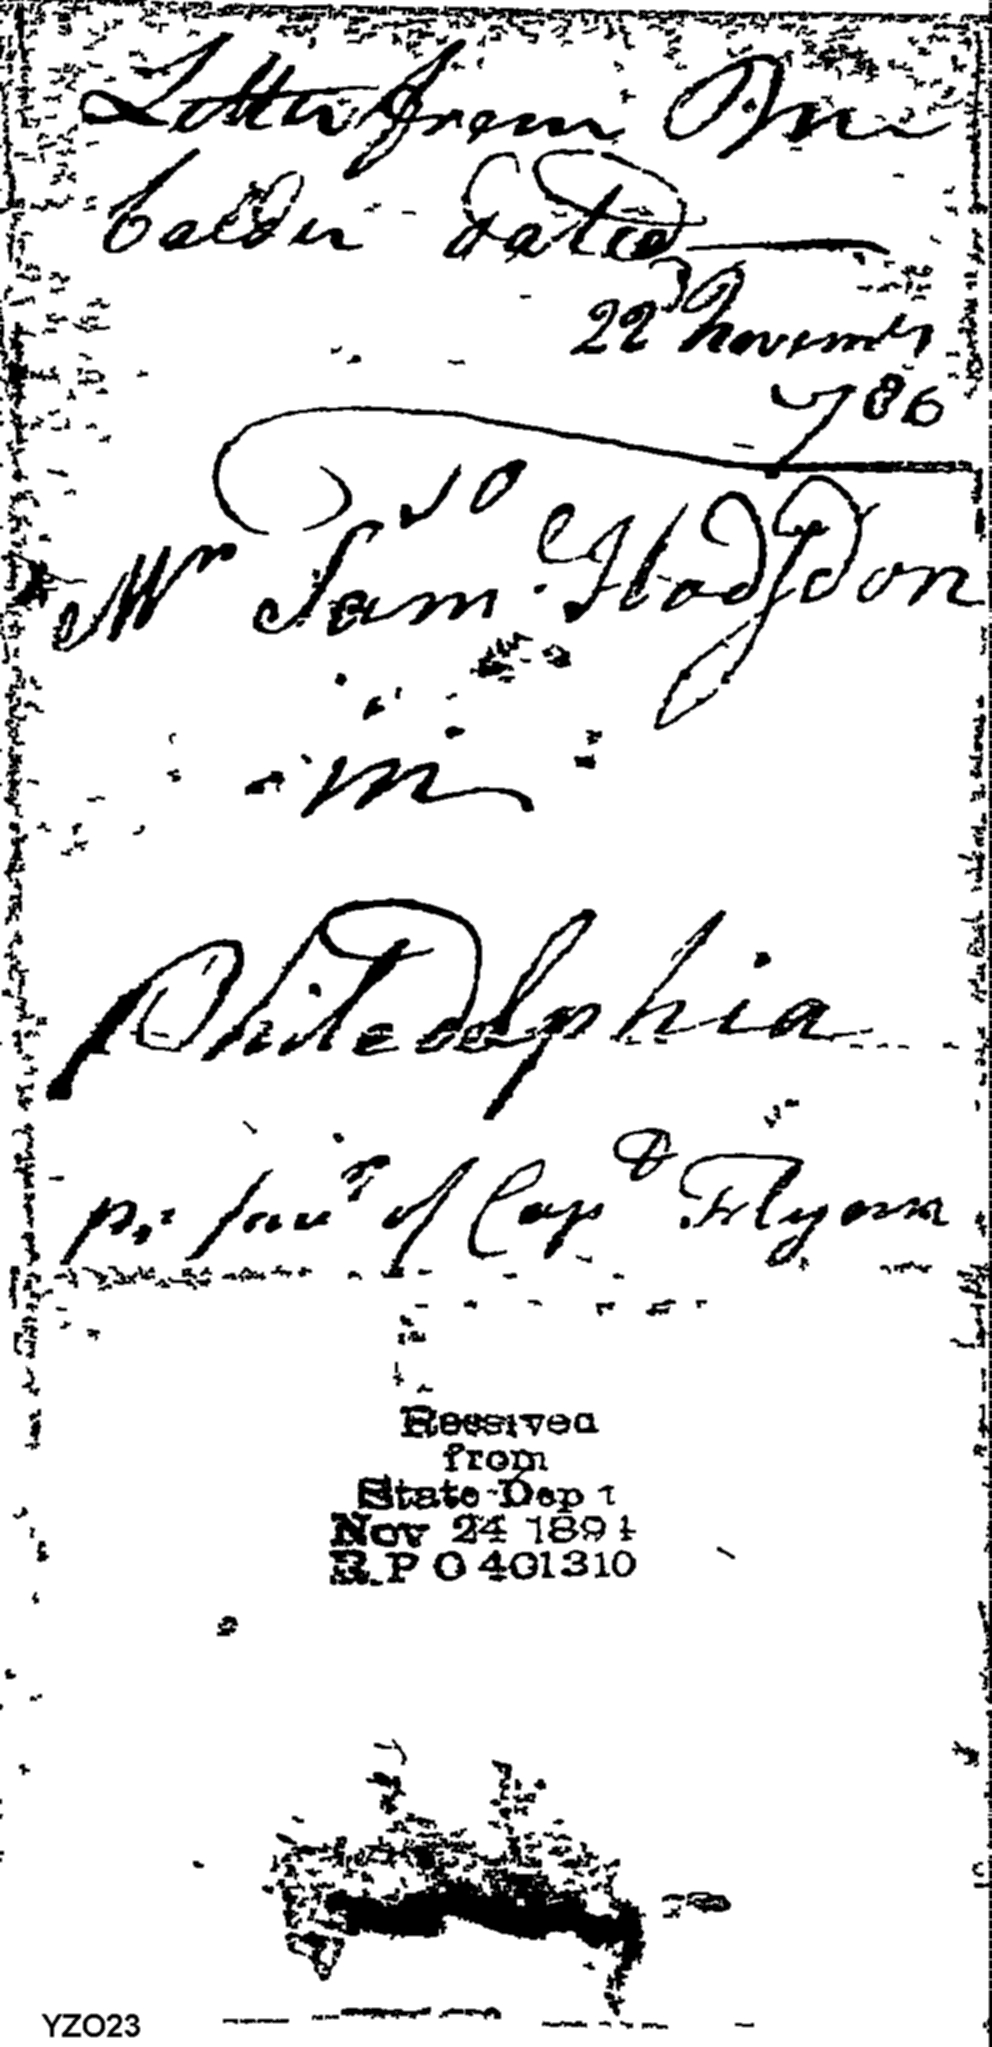 Letter from Mr
Calder dated
22d Novemr
786
To
Mr Sam Hodgdon
in
Philedelphia
pr favr of Capt Flyonn
Received
from
State Dept
Nov 24 1894
R.P O 401310
YZO23